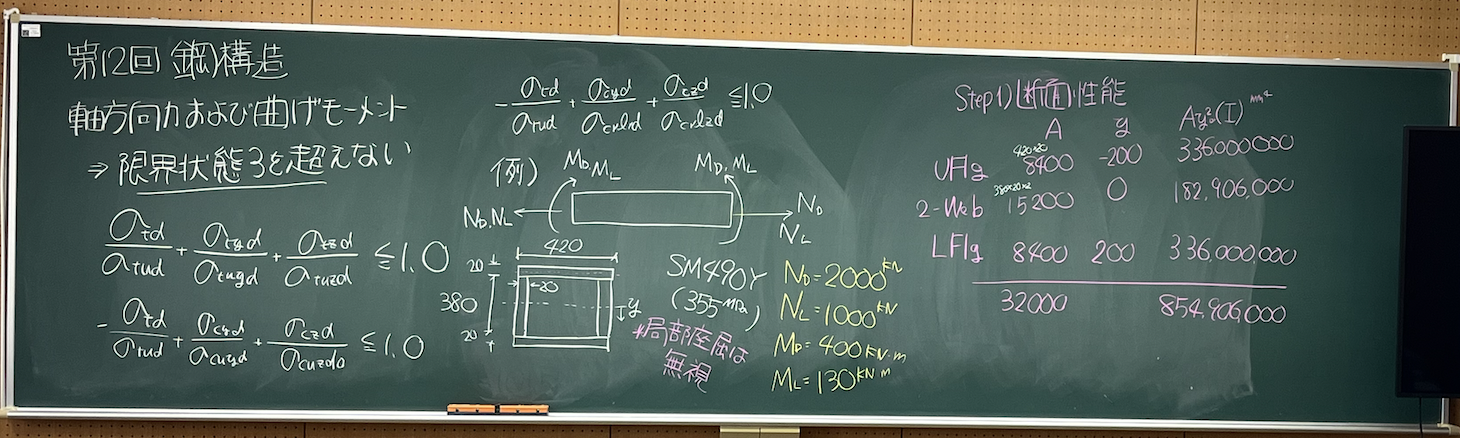 第12回 鋼構造
軸方向力および曲げモーメント
⇒ 限界状態3を超えない
σtd/σtud + σtyd/σtuyd + σtzd/σtuzd ≦ 1.0
-σtd/σtud + σcyd/σcuyd + σczd/σcuzdo ≦ 1.0
-σtd/σtud + σcyd/σcrlyd + σczd/σcrlzd ≦ 1.0
例)
MD, ML MD, ML
ND, NL ND
NL
420
20
20
380
y
20
SM490Y
(355MPa)
*局部座屈は
無視
ND = 2000kN
NL = 1000kN
MD = 400kN·m
ML = 130kN·m
Step1) 断面性能
A y Ay²(I) mm²
420×20
UFlg 8400 -200 336.000000
380×20×2
2-Web 15200 0 182,906,000
LFlg 8400 200 336,000,000
32000 854,906,000